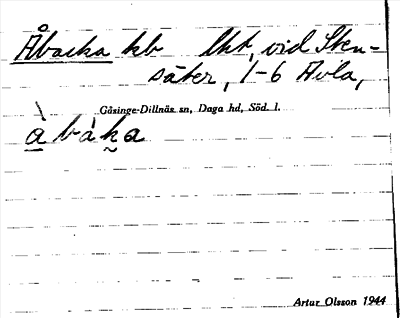 Åbacka kb lht, vid Sten-
säter, 1-6 Avla,
Gåsinge-Dillnäs sn, Daga hd, Söd. l.
å bàka
Artur Olsson 1944